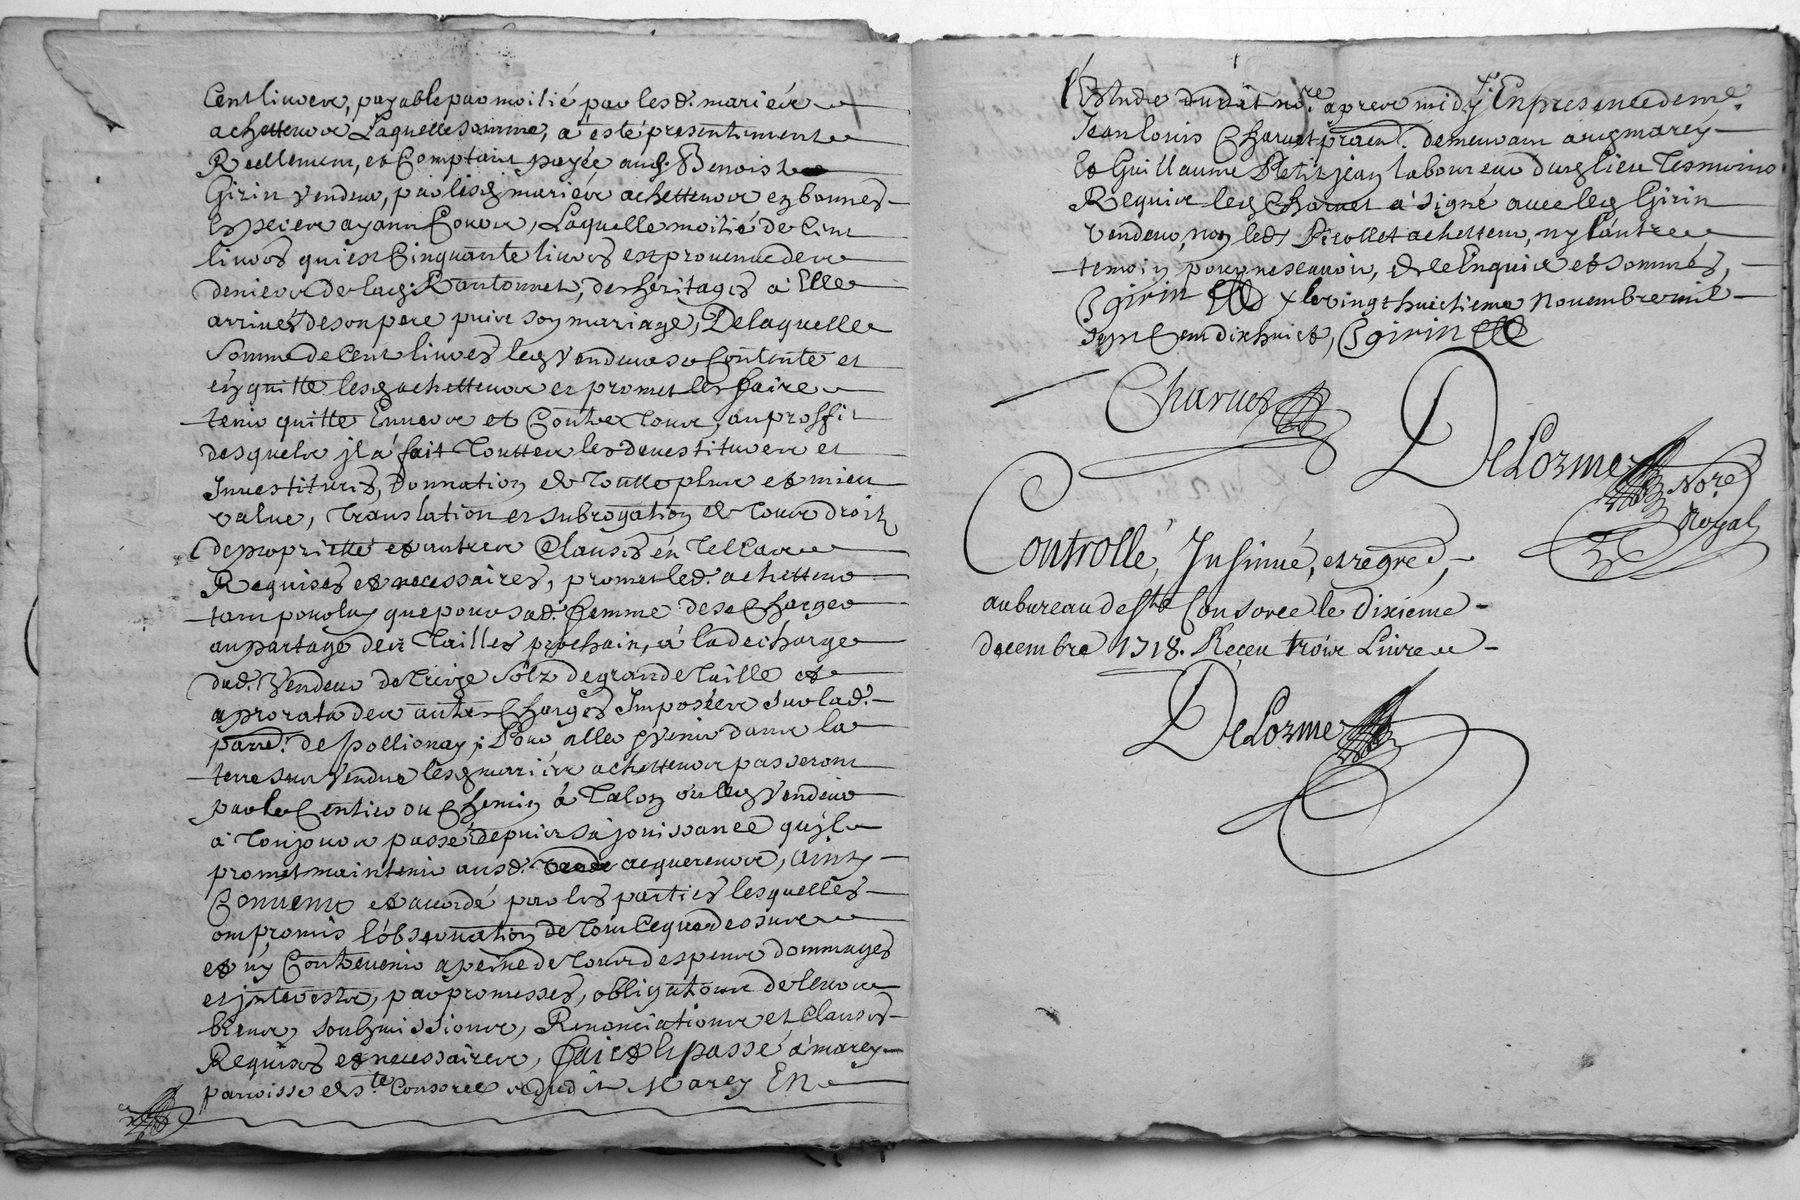 Cent livres, payable par moitié par lesd. mariés
achetteurs Laquelle somme, a esté presentement
Reellement, et Comptant payée aud. Benoist
Girin vendeur, par lesd mariés achetteurs en bonnes
Especes ayant Cours, Laquelle moitié de Cent
livres qui est Cinquante livres est provenue des
deniers de lad. , des heritages a Elle
arrivés de son pere puis son mariage, De laquelle
Somme de Cent livres led vendeur se Contente et
en quitte lesd achetteurs et promet les faire
tenir quitte Envers et Contre Tous, au proffit
desquels jl a fait Touttes les devestitures et
Jnvestitures, donnation de Toutte plus et mieu
value, Translation et subrogation de Tous droits
de proprietté et autres Clauses en Tel Cas
Requises et necessaires, promet led. achetteur
tant pour luy que pour sad. femme de se Charger
au partage des Tailles prochain, a la decharge
dud. vendeur de Treize solz de grande Taille et
a prorata des autres Charges Imposées sur lad.
parr. de Pollionay; Pour aller & venir dans la
terre sus vendue lesd mariés achetteurs passeront
par le Centier ou Chemin a Talon ou led vendeur
a Toujours passé depuis sa jouissance qu'jl
promet maintenir ausd. acquereurs, Ainsy
Convenu et acordé par les parties lesquelles
ont promis l'observation de Tout Ce que dessus
et n'y Contrevenir a peine de Tous despens dommages
et jnterests, par promesses, obligations de leurs
biens, soubmissions, Renonciations et Clauses
Requises et necessaires, fait et passé a marcy
parroisse de Ste Consorce dudit Marcy En
l'Estude dudit nore apres midy En presence de me
Jean Louis Charvet praen. demeurant aud marcy
Et Guillaume Petitjean laboureur dud lieu Tesmoins
Requis led Charvet a signé avec led Girin
vendeur, non led Pirollet achetteur, ny l'autre
temoin pour ne sçavoir, de ce Enquis et sommés,
B girin x le vingt huictieme Novembre mil
sept Cent dix huict, B girin
Charvet
DeLorme Nore
Royal
Controllé, Insinué, et regred,
au bureau de Ste Consorce le dixieme
decembre 1718. Reçeu trois Livres
DeLorme